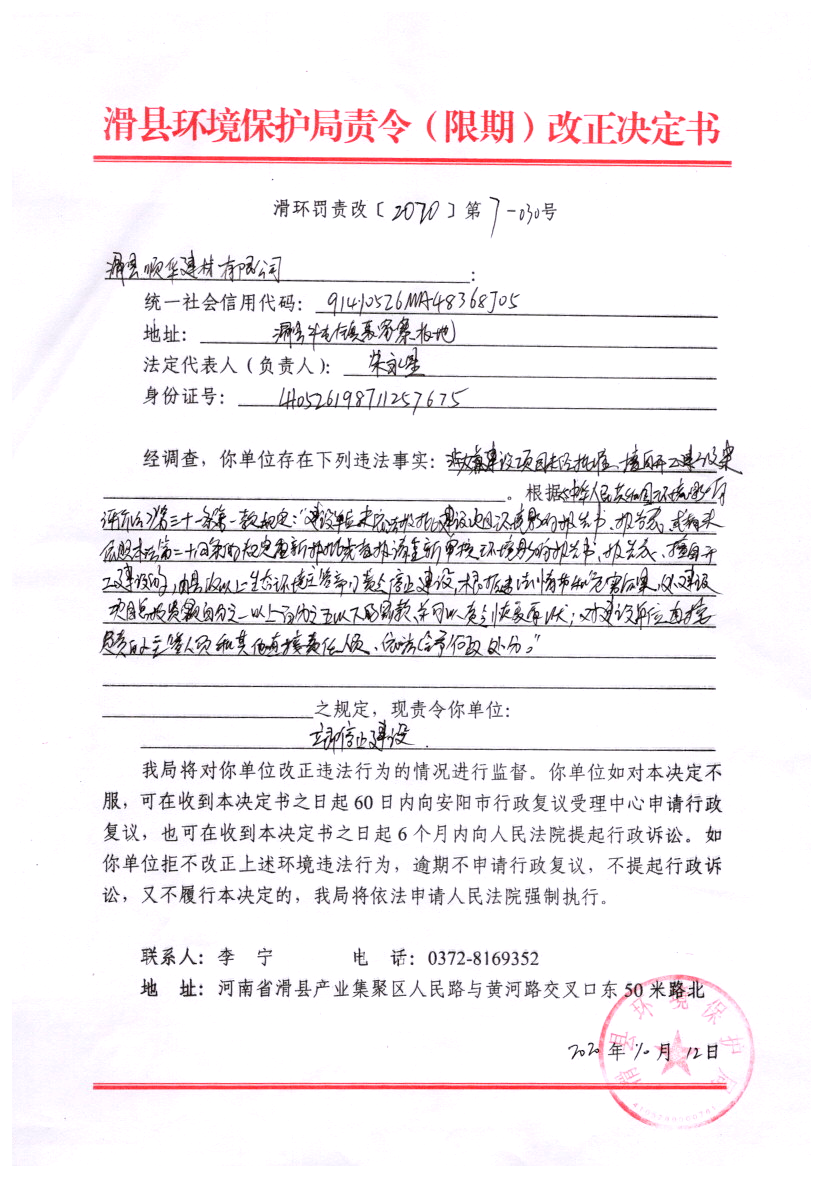 滑县环境保护局责令（限期）改正决定书
滑环罚责改〔2020〕第7-030号
滑县顺华建材有限公司：
统一社会信用代码：91410526MA48368J05
地址：滑县牛屯镇
法定代表人（负责人）：朱
身份证号：410526198711257675
经调查，你单位存在下列违法事实：建设项目未经批准，擅自开工建设案
。根据《中华人民共和国环境影响
评价法》第三十一条第一款规定：“建设单位未依法报批建设项目环境影响报告书、报告表，或者未
依照本法第二十四条的规定重新报批或者报请重新审核环境影响报告书、报告表，擅自开
工建设的，由县级以上生态环境主管部门责令停止建设，根据违法情节和危害后果，处建设
项目总投资额百分之一以上百分之五以下的罚款，并可以责令恢复原状；对建设单位直接
负责的主管人员和其他直接责任人员，依法给予行政处分。”
之规定，现责令你单位：
立即停止建设
我局将对你单位改正违法行为的情况进行监督。你单位如对本决定不
服，可在收到本决定书之日起60日内向安阳市行政复议受理中心申请行政
复议，也可在收到本决定书之日起6个月内向人民法院提起行政诉讼。如
你单位拒不改正上述环境违法行为，逾期不申请行政复议，不提起行政诉
讼，又不履行本决定的，我局将依法申请人民法院强制执行。
联系人：李 宁 电 话：0372-8169352
地 址：河南省滑县产业集聚区人民路与黄河路交叉口东50米路北
滑县环境保护局
2020年10月12日